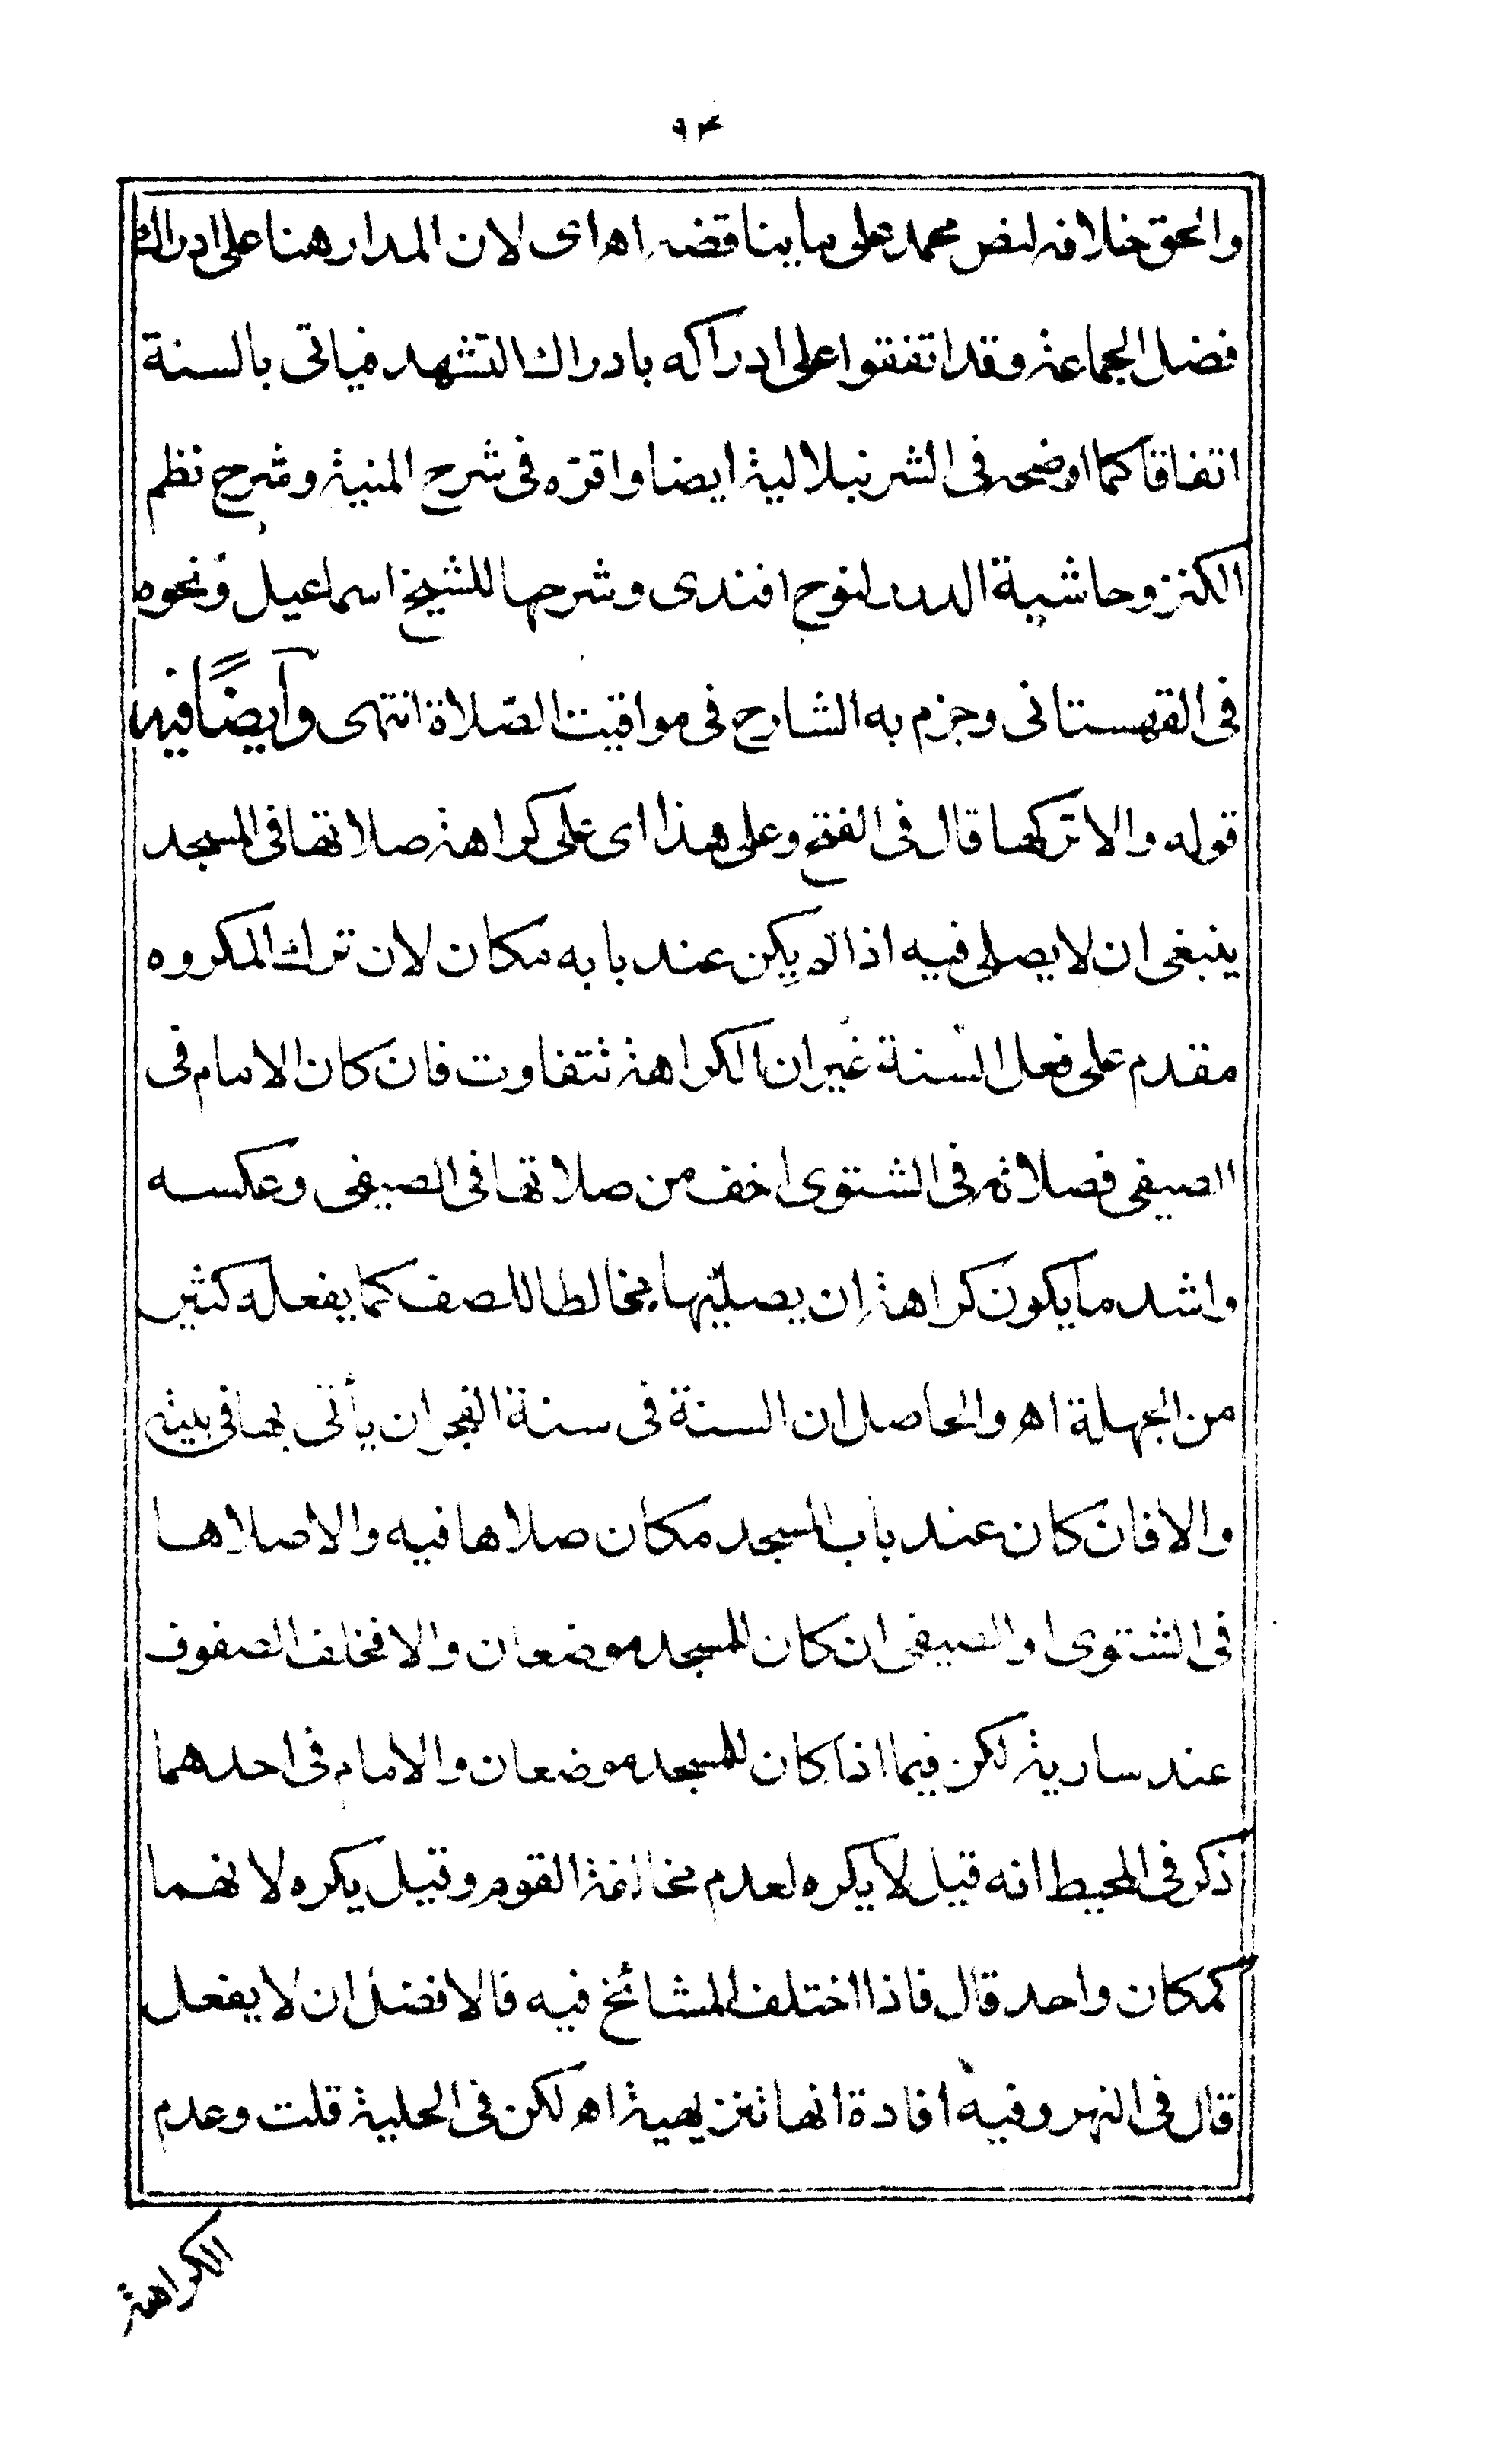 ٩٣
والحق خلافه لنص محمد على ما يناقضه اه اى لان المدار هنا على ادراك
فضل الجماعة وقد اتفقوا على ادراكه بادراك التشهد فياتى بالسنة
اتفاقا كما اوضحه فى الشرنبلالية ايضا واقرّه فى شرح المنية وشرح نظم
الكنز وحاشية الدرر لنوح افندى وشرحها للشيخ اسماعيل ونحوه
فى القهستانى وجزم به الشارح فى مواقيت الصّلاة انتهى وآيضًا فيه
قوله والا تركها قال فى الفتح وعلى هذا اى على كراهة صلاتها فى المسجد
ينبغى ان لا يصلى فيه اذا لم يكن عند بابه مكان لان ترك المكروه
مقدم على فعل السنة غير ان الكراهة تتفاوت فان كان الامام فى
الصيفى فصلاته فى الشتوى اخف من صلاتها فى الصيفى وعكسه
واشد ما يكون كراهة ان يصليها مخالطا للصف كما يفعله كثير
من الجهلة اه والحاصل ان السنة فى سنة الفجر ان يأتى بها فى بيته
والا فان كان عند باب المسجد مكان صلاها فيه والا صلاها
فى الشتوى او الصيفى ان كان للمسجد موضعان والا فخلف الصفوف
عند سارية لكن فيما اذا كان للمسجد موضعان والامام فى احدهما
ذكر فى المحيط انه قيل لا يكره لعدم مخالفة القوم وقيل يكره لانهما
كمكان واحد قال فاذا اختلف المشائخ فيه فالافضل ان لا يفعل
قال فى النهر وفيه افادة انها تنزيهية اه لكن فى الحلية قلت وعدم
الكراهة